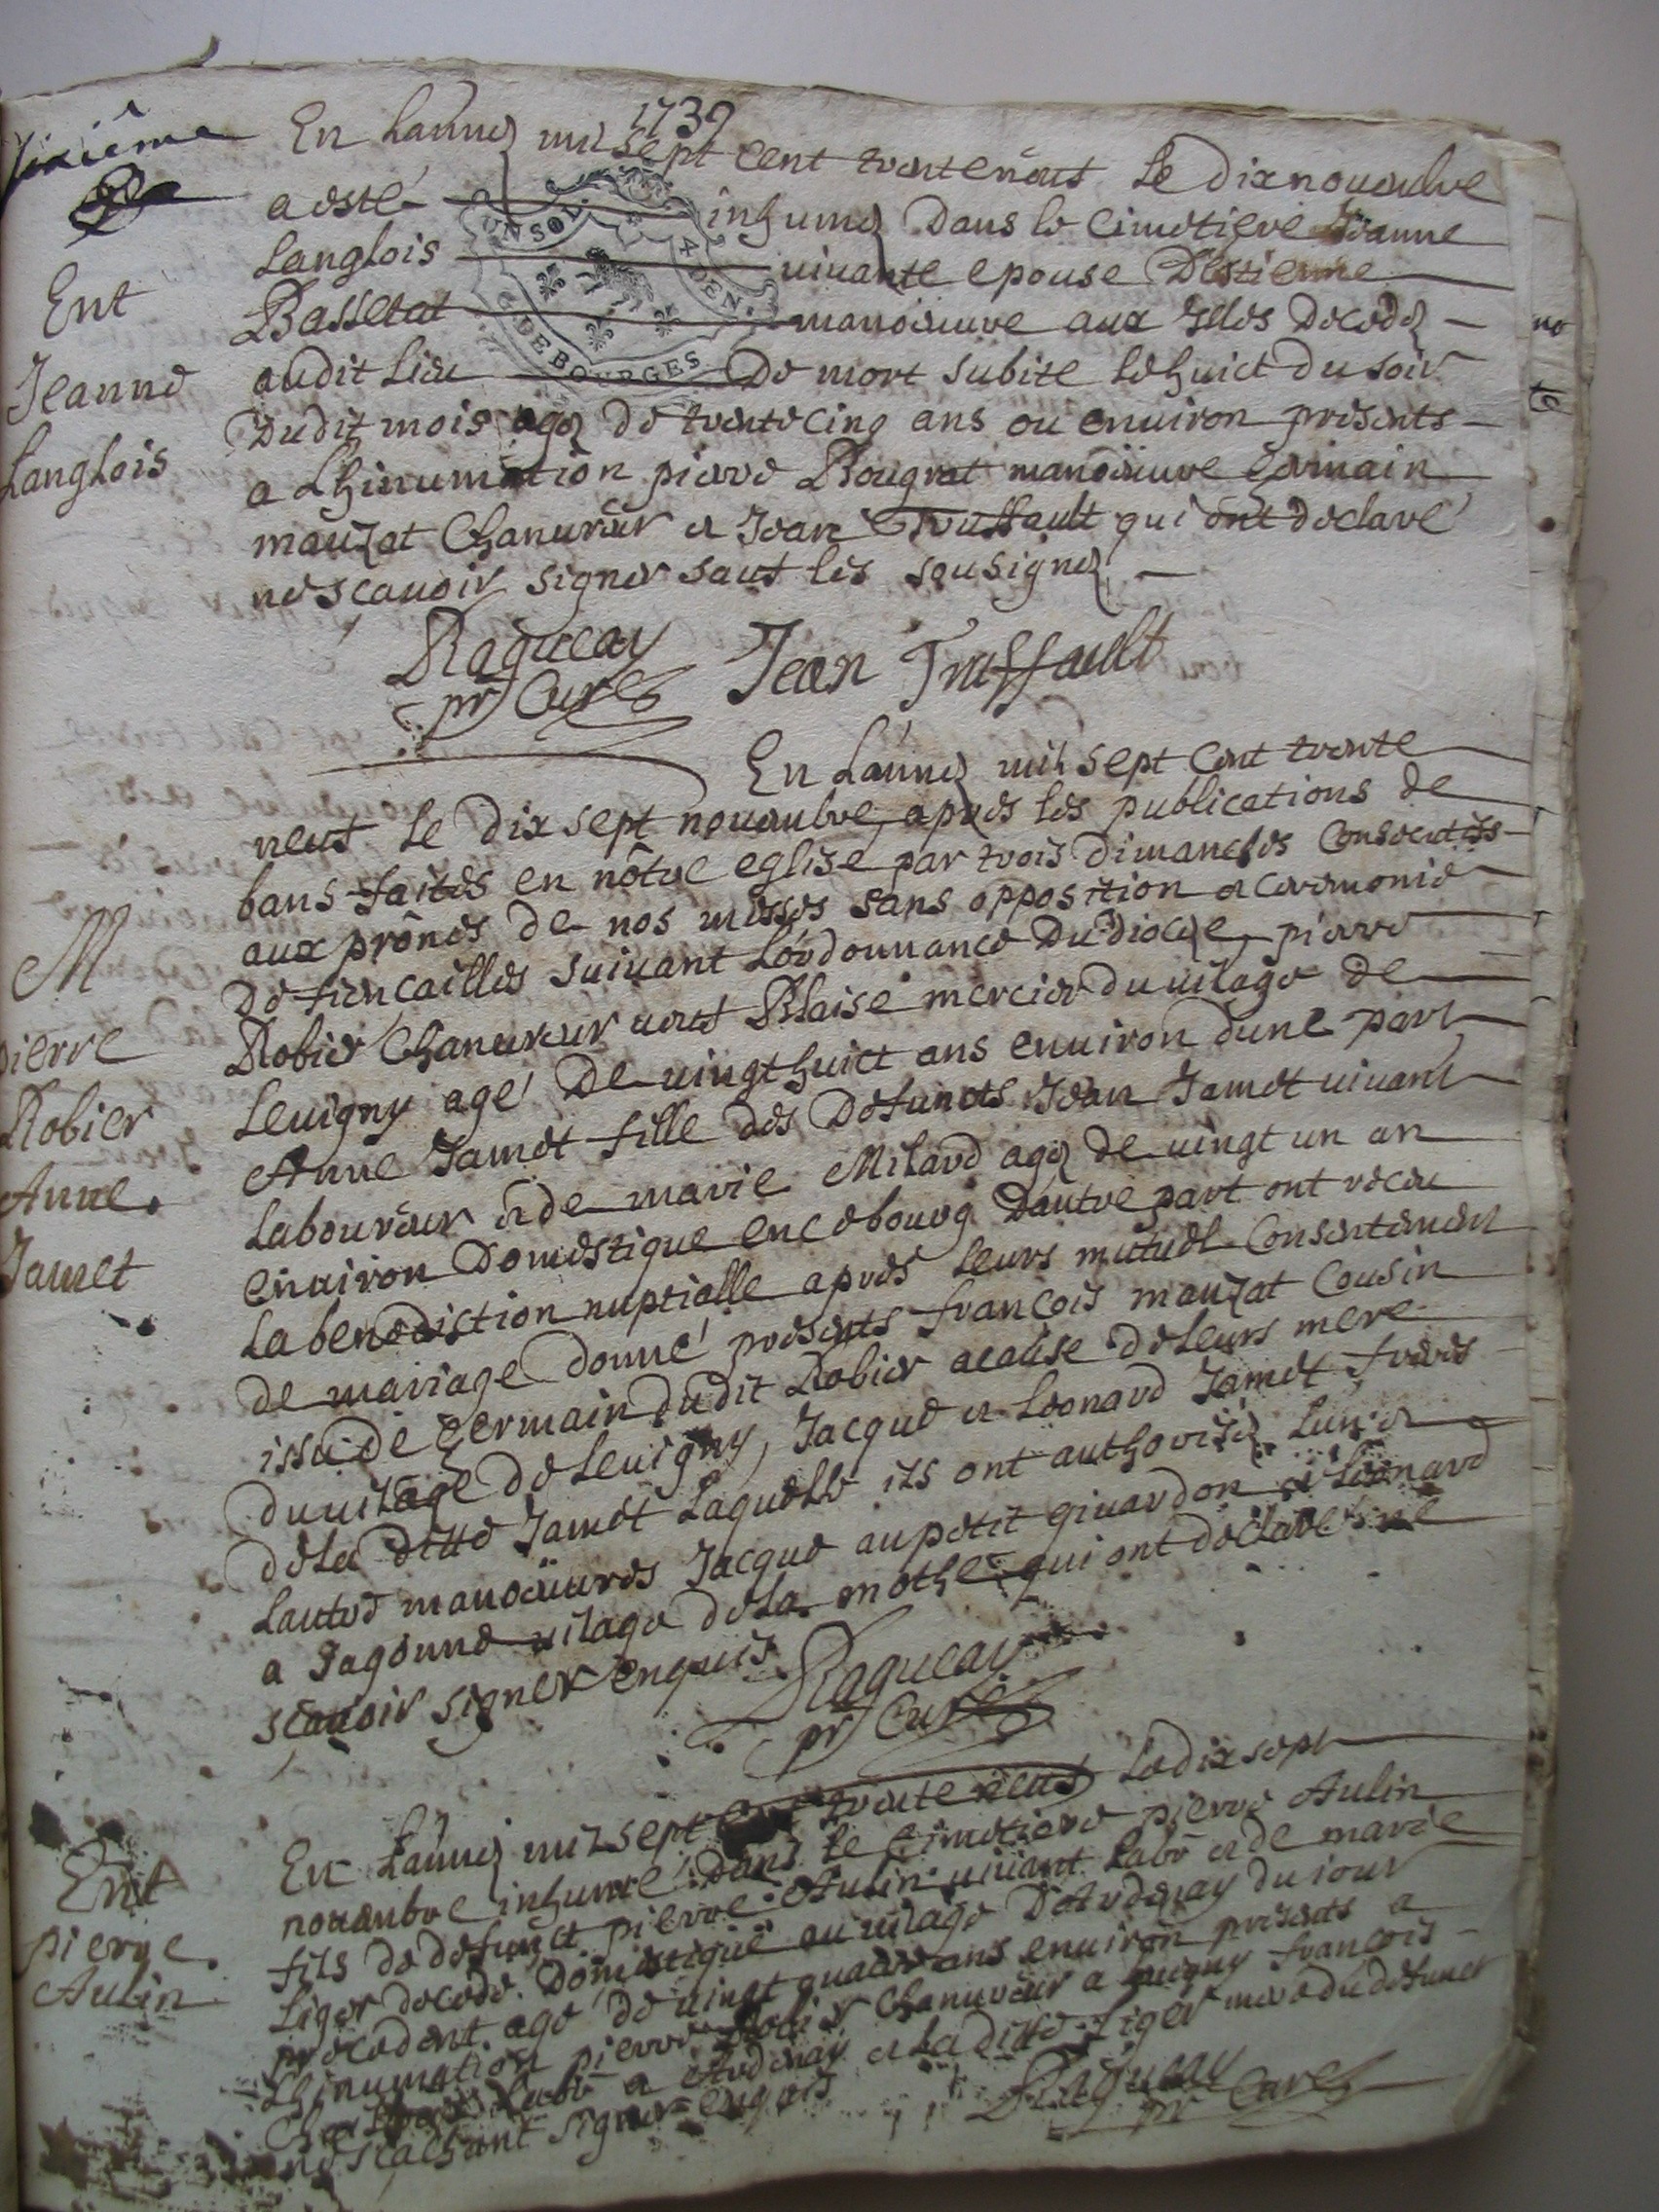 1739
sixiême
En Lannéé mil sept cent trente neuf Le Dix nouembre
a esté inhumeé Dans le Cimetiere Jeanne
Langlois uiuante epouse D'Estienne
Bassetat manoeuure aux Isles Decedeé
audit Lieu De mort subite le huict du soir
Dudit mois ageé de trente cinq ans ou enuiron presents
a Lhinumation pierre Bougrat manoeuure Germain
mauzat Chanureur et Jean Truffault qui ont declaré
ne scauoir signer sauf les sousignéz
Ent
Jeanne
Langlois
Ragueau
pr Curé
Jean Truffault
En Lanneé mil sept cent trente
neuf Le Dix sept nouembre, apres les publications de
bans faites en nôtre eglise par trois Dimanches Consecutifs
aux prônes de nos messes sans opposition et ceremonie
De fiencailles suiuant Lordonnance Du diocese, pierre
Robier Chanureur ueuf Blaise mercier du uilage de
Leuigny agé De uingt huict ans enuiron dune part
Anne Jamet fille des Defuncts Jean Jamet uiuant
Laboureur et de marie Milard ageé de uingt un an
enuiron Domestique en ce bourg Dautre part ont receu
La benediction nuptialle apres leurs mutuel Consentement
de mariage Donné presents françois mauzat Cousin
issu de Germain dudit Robier acause de leurs mere
du uilage de Leuigny, Jacque et Leonard Jamet freres
de la ditte Jamet Laquelle ils ont authoriseé Lun et
Lautre manoeuures Jacque au petit giuardon et Leonard
a Sagonne uilage de la mothe qui ont declaré ne
scauoir signer enquis
M
pierre
Robier
Anne
Jamet
Ragueau
pr Curé
En Lanneé mil sept cent trente neuf Le dix sept
nouembre inhumé Dans le Cimetiere pierre Aulin
fils de defunct pierre Aulin uiuant Labr et de marie
Liger decedé Domestique au uilage D'Ardenay du iour
precedent agé de uingt quatre ans enuiron presents a
Lhinumation pierre Robier Chanureur a françois
Labr a Ardenay et La ditte Liger mere du defunct
ne scachant signer enquis
Ent
pierre
Aulin
Ragueau
pr Curé